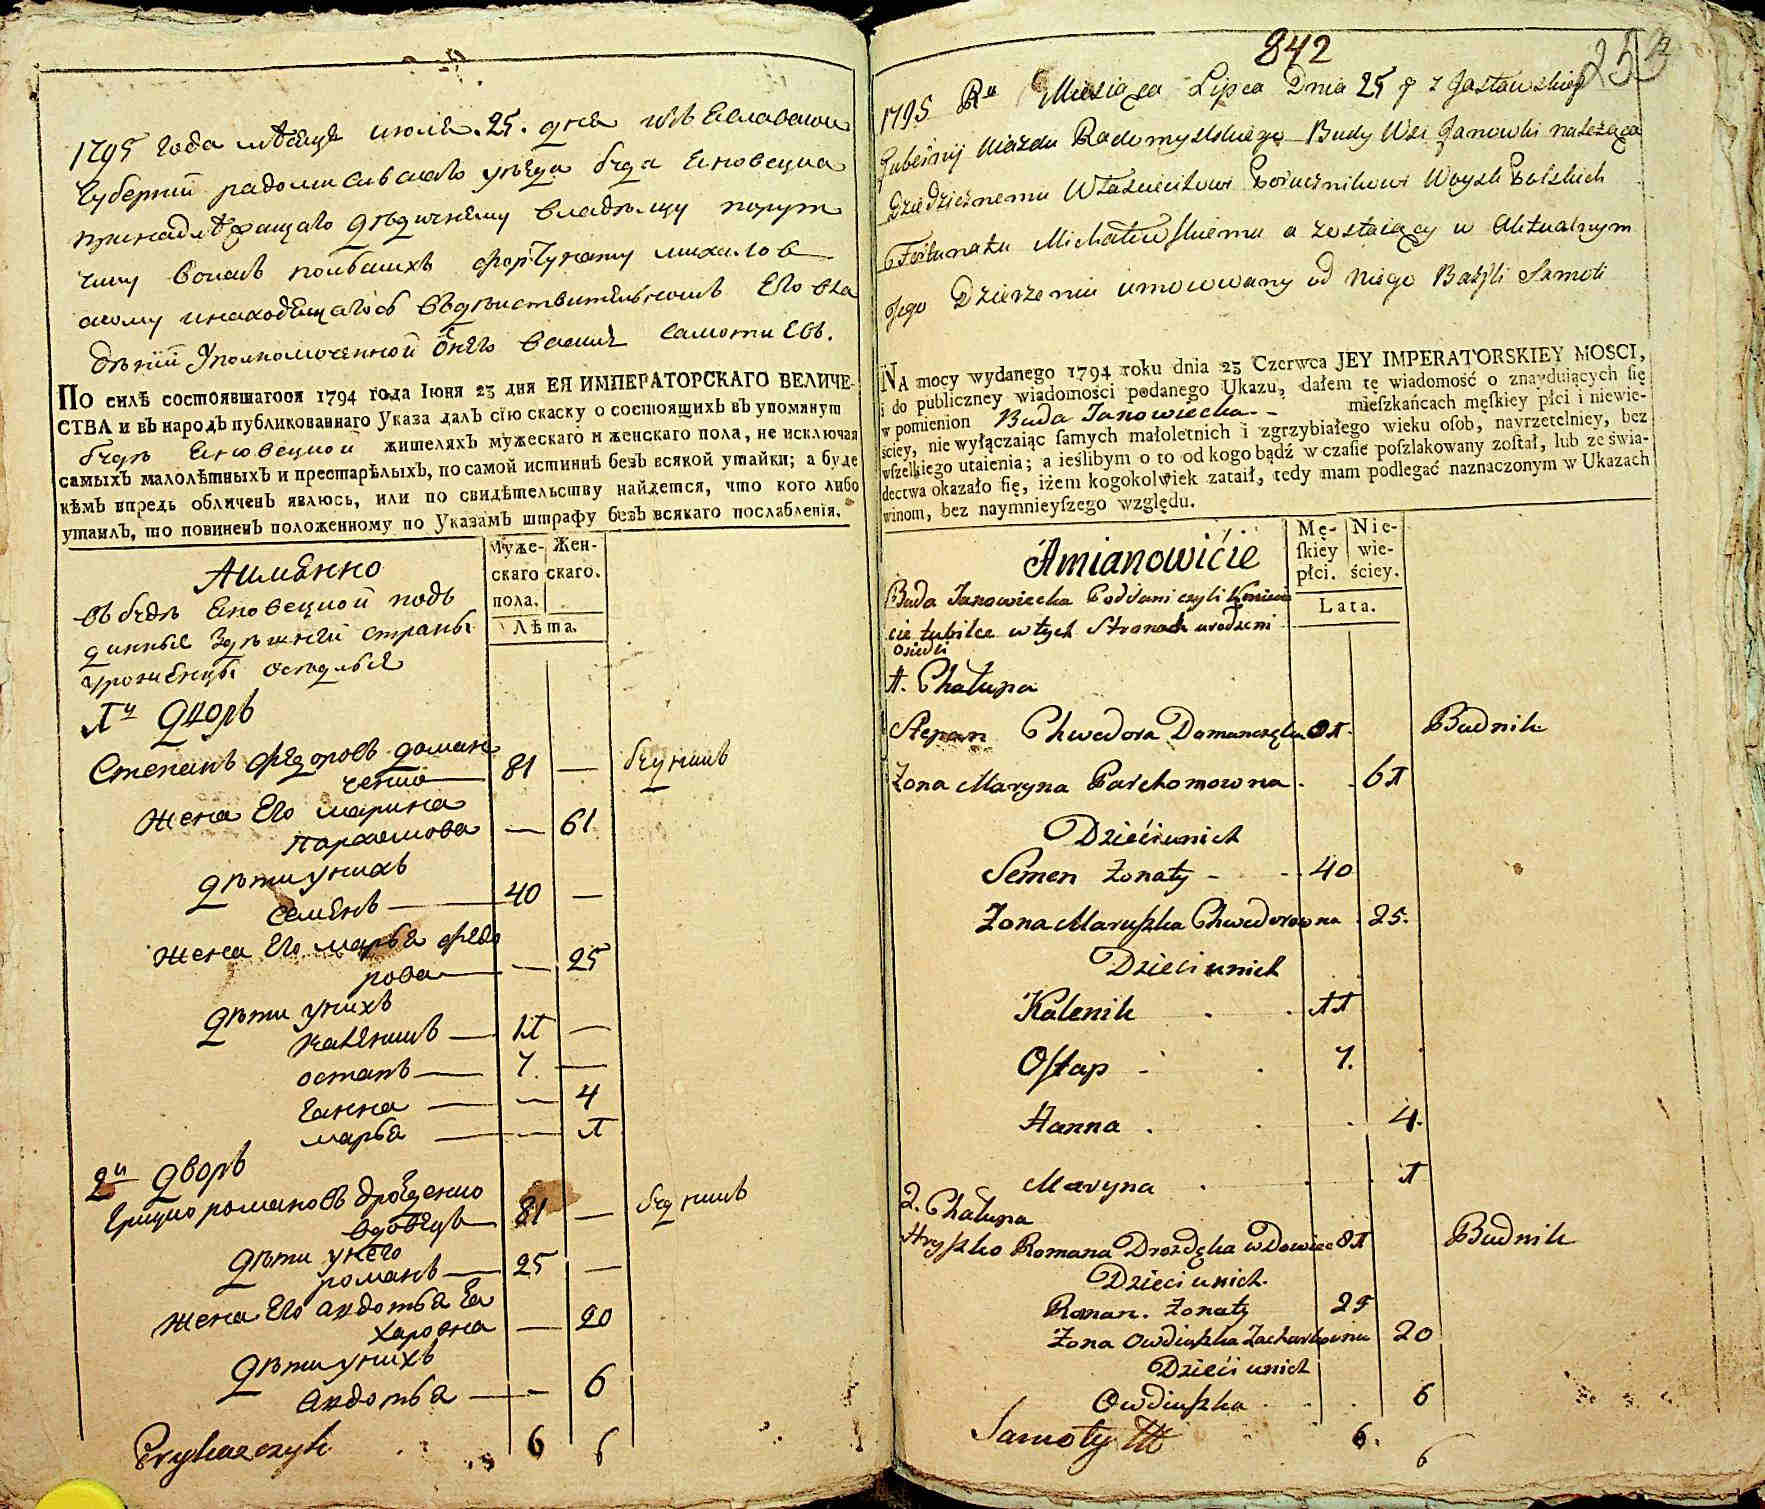 1795 года месяца июля. 25. дня изъ Еславской
Губернии радомисльскаго уезда буда Еновецка
принадлежащаго дедичнему владельцу поруч
чику войскъ польскихъ фортунату михалов
скому инаходящагося въдействительномъ Его вла
дении Уполномоченной отнего василъ Самоти Евъ.
ПО силѣ состоявшагося 1794 года Іюня 23 дня ЕЯ ИМПЕРАТОРСКАГО ВЕЛИЧЕ-
СТВА и въ народъ публикованнаго Указа далъ сїю скаску о состоящихъ въ упомянут
будѣ Еновецкой жителяхъ мужескаго и женскаго пола, не исключая
самыхъ малолѣтныхъ и престарѣлыхъ, по самой истиннѣ безъ всякой утайки; а буде
кѣмъ впредь обличенъ явлюсь, или по свидѣтельству найдется, что кого либо
утаилъ, то повиненъ положенному по Указамъ штрафу безъ всякаго послабленія.
Аименно
въ будѣ Еновецкой подъ
данные здешней страны
уроженцы оседлые
Муже- Жен-
скаго скаго.
пола.
Лѣта.
1й дворъ
Степанъ федоровъ доман
ченко 81 — будникъ
жена Его марина
пархомова — 61
дети унихъ
семенъ 40 —
жена Его марья федо
рова — 25
дети унихъ
каленикъ 11 —
остапъ 7. —
ганна — 4
марья — 1
2й дворъ
Грицко романовъ дрозденко
вдовецъ 81 — будникъ
дети унего
романъ 25 —
жена Его авдотья за
харовна — 20
дети унихъ
авдотья — 6
Prykazczyk 6 6
842
253
1795 Ru Miesiąca Lipca Dnia 25 z Jasławskiey
Gubernij Uiazdu Radomyslskiego Budy Wsi Janowki należąca
Dziedzicznemu Właścicielowi Porucznikowi Woysk Polskich
Fortunatu Michałowskiemu a zostaiący w Aktualnym
Jego Dzierżeniu umocowany od niego Bazyli Samoti
NA mocy wydanego 1794 roku dnia 23 Czerwca JEY IMPERATORSKIEY MOSCI,
i do publiczney wiadomości podanego Ukazu, dałem tę wiadomość o znayduiących ſię
w pomienion Buda Janowiecka - - mieſzkańcach męſkiey płci i niewie-
ściey, nie wyłączaiąc ſamych małoletnich i zgrzybiałego wieku oſob, nayrzetelniey, bez
wſzelkiego utaienia; a ieślibym o to od kogo bądź w czaſie poſzlakowany zoſtał, lub ze świa-
dectwa okazało ſię, iżem kogokolwiek zataił, tedy mam podlegać naznaczonym w Ukazach
winom, bez naymnieyſzego względu.
Amianowićie
Mę- Nie-
ſkiey wie-
płci. ściey.
Lata.
Buda Janowiecka Poddani czyli
cie tubilce wtych Stronach urodzeni
osiedli
1. Chałupa
Stepan Chwedora Domanczęka 81. Budnik
Żona Maryna Parchomowna . . 61
Dzieci unich
Semen żonaty - - 40
Żona Maruſzka Chwedorowna . 25.
Dzieci unich
Kalenik . . 11
Oſtap - . 7.
Hanna . . . 4.
Maryna . . . 1
2. Chałupa
Hryſzko Romana Drozdęka wdowiec 81 Budnik
Dzieci unich.
Roman. żonaty 25
Żona Owdiuſzka Zacharkowna 20
Dzieci unich
Owdiuſzka . . . 6
Samoty 6. 6